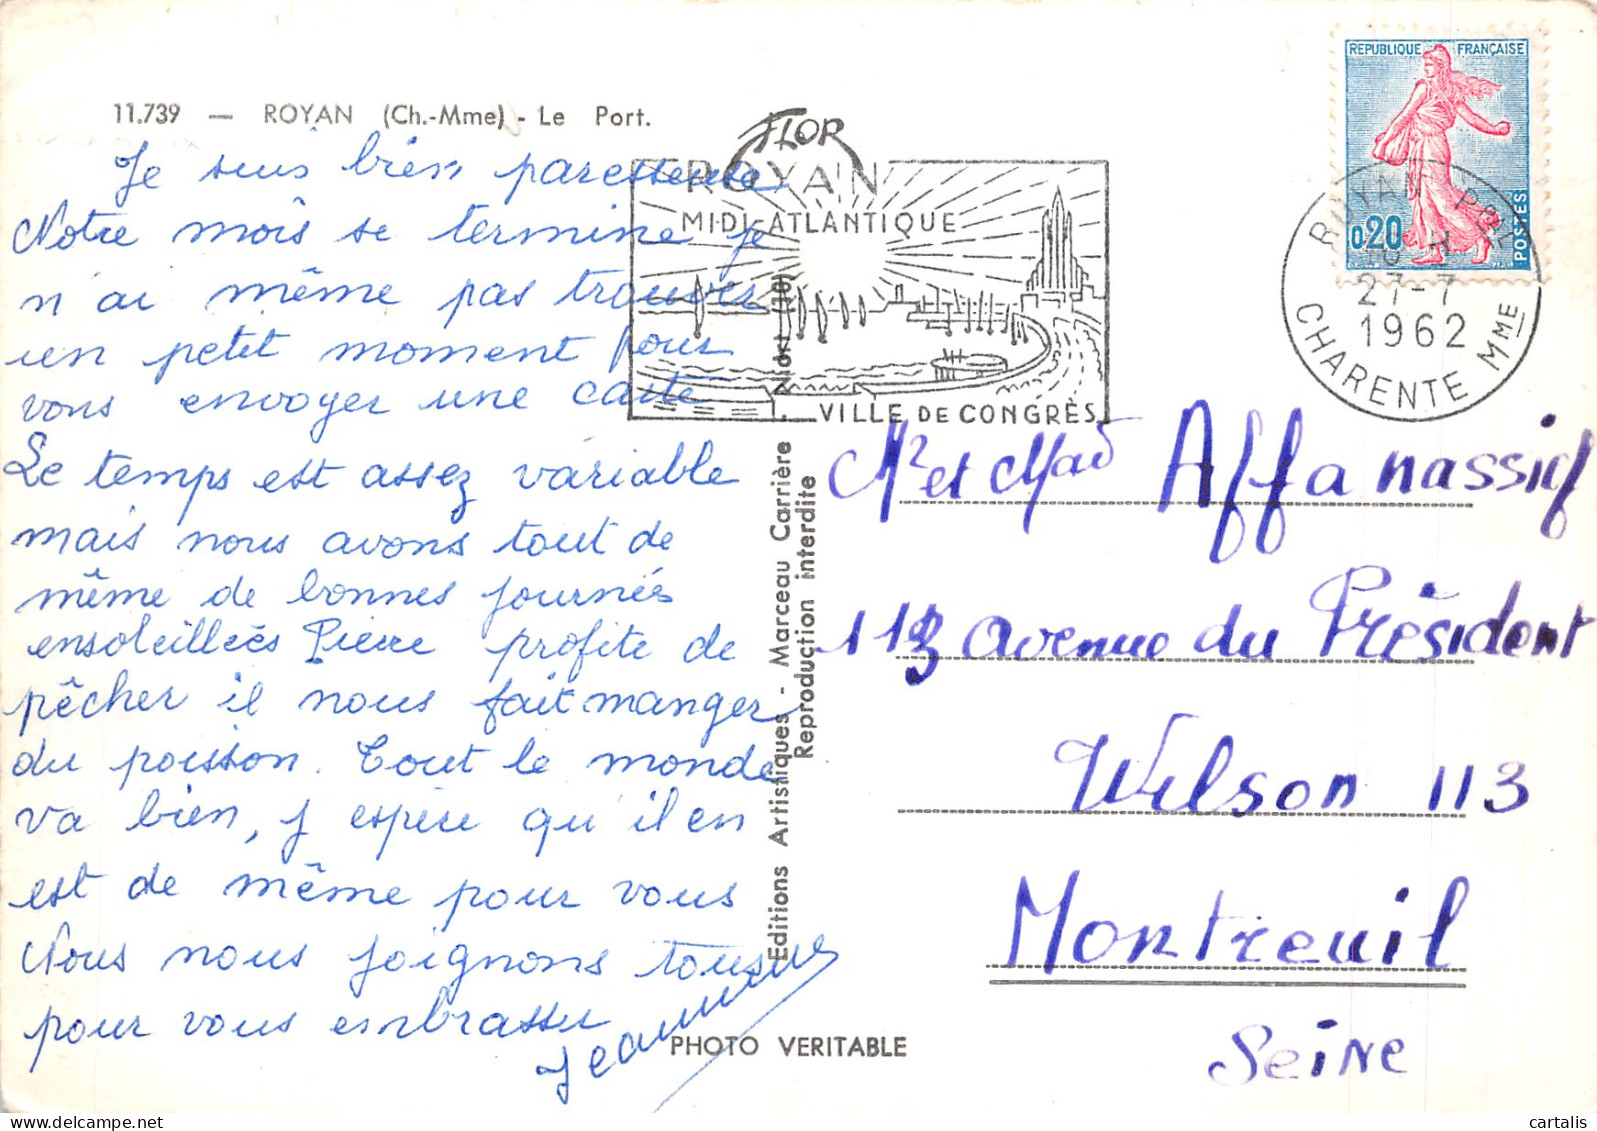 11.739 — ROYAN (Ch.-Mme) - Le Port.
Je suis bien paresseuse
Notre mois se termine je
n'ai même pas trouver
un petit moment pour
vous envoyer une carte
Le temps est assez variable
mais nous avons tout de
même de bonnes journées
ensoleillées Pierre profite de
pêcher il nous fait manger
du poisson. Tout le monde
va bien, j espère qu'il en
est de même pour vous
Nous nous joignons tous
pour vous embrasser
Jeannine
FLOR
ROYAN
MIDI-ATLANTIQUE
VILLE DE CONGRÈS
REPUBLIQUE FRANÇAISE
0,20
POSTES
ROYAN PPL
27-7
1962
CHARENTE MME
Editions Artistiques - Marceau Carrière - Niort (10)
Reproduction interdite
Mr et Mad Affanassief
113 avenue du Président
Wilson 113
Montreuil
Seine
PHOTO VERITABLE
cartalis